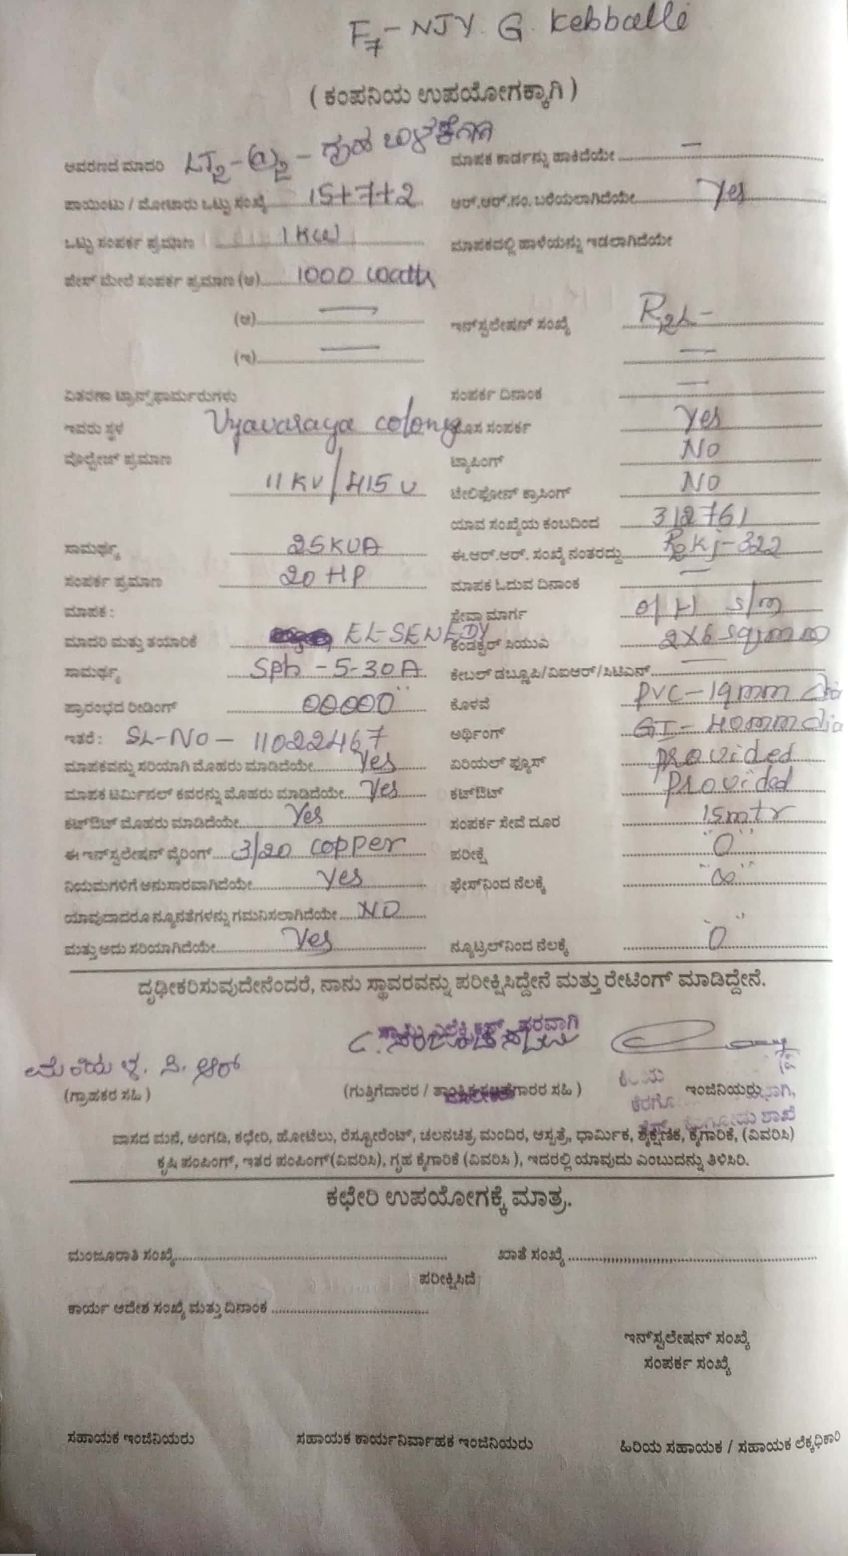 F7 - NJY. G. Kebballi
( ಕಂಪನಿಯ ಉಪಯೋಗಕ್ಕಾಗಿ )
ಆವರಣದ ಮಾದರಿ LT2-(a)2 - ಗೃಹ ಬಳಕೆಗಾಗಿ ಮಾಪಕ ಕಾರ್ಡನ್ನು ಹಾಕಿದೆಯೇ —
ಪಾಯಿಂಟು / ಮೋಟಾರು ಒಟ್ಟು ಸಂಖ್ಯೆ 15+7+2 ಆರ್.ಆರ್.ನಂ. ಬರೆಯಲಾಗಿದೆಯೇ Yes
ಒಟ್ಟು ಸಂಪರ್ಕ ಪ್ರಮಾಣ 1 KW ಮಾಪಕದಲ್ಲಿ ಹಾಳೆಯನ್ನು ಇಡಲಾಗಿದೆಯೇ
ಪೇಸ್ ಮೇಲೆ ಸಂಪರ್ಕ ಪ್ರಮಾಣ (ಅ) 1000 watts
(ಆ) — ಇನ್‌ಸ್ಟಲೇಷನ್ ಸಂಖ್ಯೆ R2L-
(ಇ) — —
ವಿತರಣಾ ಟ್ರಾನ್ಸ್‌ಫಾರ್ಮರುಗಳು ಸಂಪರ್ಕ ದಿನಾಂಕ —
ಇವರು ಸ್ಥಳ Vyavaraya colony ಹೊಸ ಸಂಪರ್ಕ Yes
ವೋಲ್ಟೇಜ್ ಪ್ರಮಾಣ ಟ್ಯಾಪಿಂಗ್ No
11 KV/415 V ಟೆಲಿಫೋನ್ ಕ್ರಾಸಿಂಗ್ No
ಯಾವ ಸಂಖ್ಯೆಯ ಕಂಬದಿಂದ 312761
ಸಾಮರ್ಥ್ಯ 25KVA ಈ.ಆರ್.ಆರ್. ಸಂಖ್ಯೆ ನಂತರದ್ದು R2Kj-322
ಸಂಪರ್ಕ ಪ್ರಮಾಣ 20 HP ಮಾಪಕ ಓದುವ ದಿನಾಂಕ —
ಮಾಪಕ : ಸೇವಾ ಮಾರ್ಗ O/H S/m
ಮಾದರಿ ಮತ್ತು ತಯಾರಿಕೆ EL-SENEDY ಕಂಡಕ್ಟರ್ ಸಿಯುಎ 2X6 sqmm
ಸಾಮರ್ಥ್ಯ Sph - 5-30A ಕೇಬಲ್ ಡಬ್ಲೂಪಿ/ವಿಐಆರ್/ಸಿಟಿಎನ್ —
ಪ್ರಾರಂಭದ ರೀಡಿಂಗ್ 00000 ಕೊಳವೆ PVC-19mm dia
ಇತರೆ : SL-No - 11022467 ಅರ್ಥಿಂಗ್ GI- 40mm dia
ಮಾಪಕವನ್ನು ಸರಿಯಾಗಿ ಮೊಹರು ಮಾಡಿದೆಯೇ Yes ಏರಿಯಲ್ ಫ್ಯೂಸ್ provided
ಮಾಪಕ ಟರ್ಮಿನಲ್ ಕವರನ್ನು ಮೊಹರು ಮಾಡಿದೆಯೇ Yes ಕಟ್‌ಔಟ್ Provided
ಕಟ್‌ಔಟ್ ಮೊಹರು ಮಾಡಿದೆಯೇ Yes ಸಂಪರ್ಕ ಸೇವೆ ದೂರ 15mtr
ಈ ಇನ್‌ಸ್ಟಲೇಷನ್ ವೈರಿಂಗ್ 3/20 copper ಪರೀಕ್ಷೆ "0"
ನಿಯಮಗಳಿಗೆ ಅನುಸಾರವಾಗಿದೆಯೇ Yes ಫೇಸ್‌ನಿಂದ ನೆಲಕ್ಕೆ "∞"
ಯಾವುದಾದರೂ ನ್ಯೂನತೆಗಳನ್ನು ಗಮನಿಸಲಾಗಿದೆಯೇ NO
ಮತ್ತು ಅದು ಸರಿಯಾಗಿದೆಯೇ Yes ನ್ಯೂಟ್ರಲ್‌ನಿಂದ ನೆಲಕ್ಕೆ "0"
ದೃಢೀಕರಿಸುವುದೇನೆಂದರೆ, ನಾನು ಸ್ಥಾವರವನ್ನು ಪರೀಕ್ಷಿಸಿದ್ದೇನೆ ಮತ್ತು ರೇಟಿಂಗ್ ಮಾಡಿದ್ದೇನೆ.
ಪರವಾಗಿ
ಸಿ. ಆರ್
(ಗ್ರಾಹಕರ ಸಹಿ ) (ಗುತ್ತಿಗೆದಾರರ / ತಾಂತ್ರಿಕ ಸಲಹೆಗಾರರ ಸಹಿ ) ಇಂಜಿನಿಯರು
ಶಾಖೆ
ವಾಸದ ಮನೆ, ಅಂಗಡಿ, ಕಛೇರಿ, ಹೋಟೆಲು, ರೆಸ್ಟೋರೆಂಟ್, ಚಲನಚಿತ್ರ ಮಂದಿರ, ಆಸ್ಪತ್ರೆ, ಧಾರ್ಮಿಕ, ಶೈಕ್ಷಣಿಕ, ಕೈಗಾರಿಕೆ, (ವಿವರಿಸಿ)
ಕೃಷಿ ಪಂಪಿಂಗ್, ಇತರ ಪಂಪಿಂಗ್(ವಿವರಿಸಿ), ಗೃಹ ಕೈಗಾರಿಕೆ (ವಿವರಿಸಿ ), ಇದರಲ್ಲಿ ಯಾವುದು ಎಂಬುದನ್ನು ತಿಳಿಸಿರಿ.
ಕಛೇರಿ ಉಪಯೋಗಕ್ಕೆ ಮಾತ್ರ.
ಮಂಜೂರಾತಿ ಸಂಖ್ಯೆ ಖಾತೆ ಸಂಖ್ಯೆ
ಪರೀಕ್ಷಿಸಿದೆ
ಕಾರ್ಯ ಆದೇಶ ಸಂಖ್ಯೆ ಮತ್ತು ದಿನಾಂಕ
ಇನ್‌ಸ್ಟಲೇಷನ್ ಸಂಖ್ಯೆ
ಸಂಪರ್ಕ ಸಂಖ್ಯೆ
ಸಹಾಯಕ ಇಂಜಿನಿಯರು ಸಹಾಯಕ ಕಾರ್ಯನಿರ್ವಾಹಕ ಇಂಜಿನಿಯರು ಹಿರಿಯ ಸಹಾಯಕ / ಸಹಾಯಕ ಲೆಕ್ಕಧಿಕಾರಿ